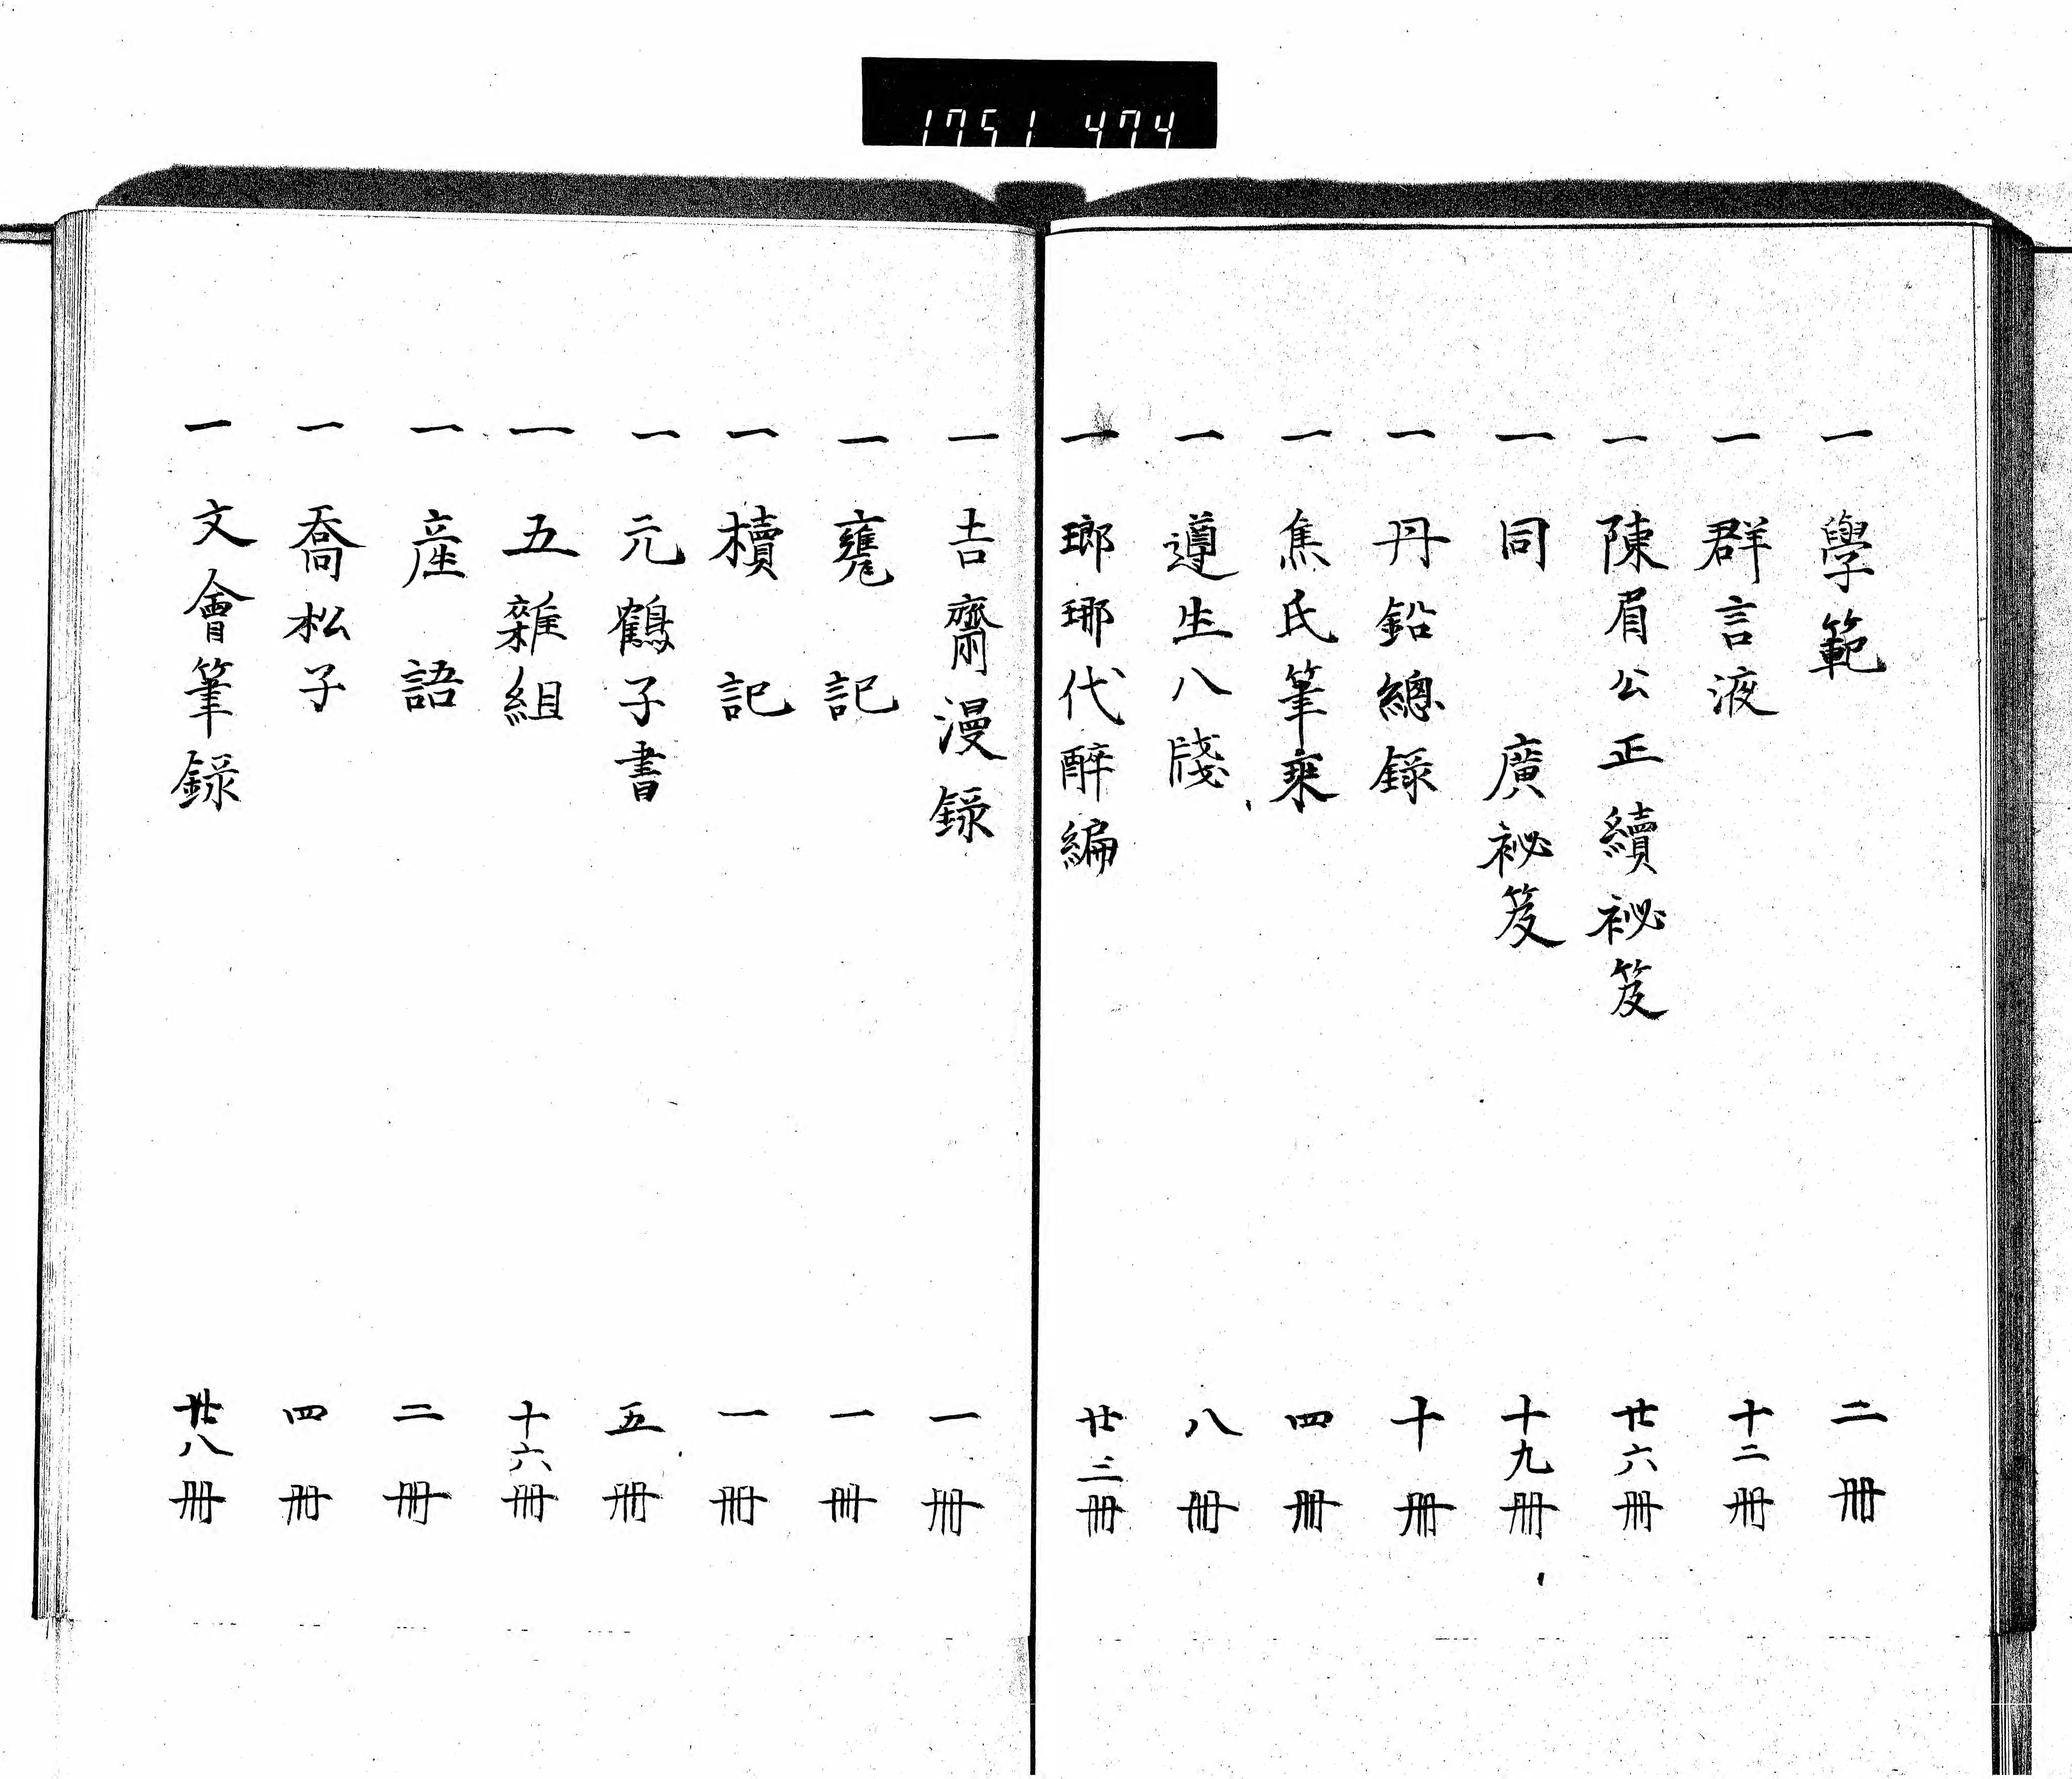 1751 474
一 學範 二冊
一 群言液 十二冊
一 陳眉公正續祕笈 廿六冊
一 同 廣祕笈 十九冊
一 丹鉛總録 十冊
一 焦氏筆乘 四冊
一 遵生八牋 八冊
一 瑯琊代醉編 廿三冊
一 吉齋漫録 一冊
一 甕記 一冊
一 櫝記 一冊
一 元鶴子書 五冊
一 五雜組 十六冊
一 産語 二冊
一 喬松子 四冊
一 文會筆録 廿八冊